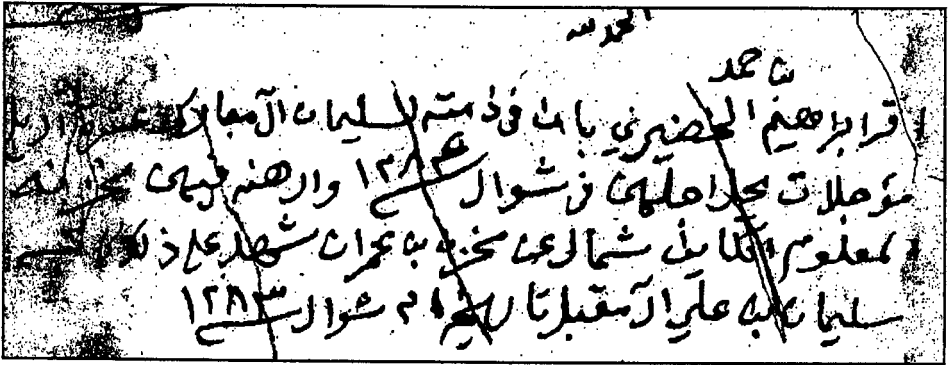 الحمد لله
بن حمد
اقر ابراهيم الخضيري بان في ذمته لسليمان آل مبارك عشرة اريل
مؤجلات يحل اجلهن في شوال سنة ١٢٨٤ وارهنه فيهن مخزنه
المعلوم الكاين شمالي عن مخزن بن عمران شهد على ذلك
سليمان بن علي آل مقبل تاريخه شوال سنة ١٢٨٣